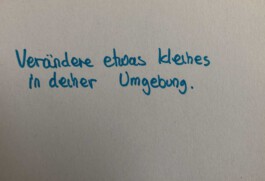 Verändere etwas kleines
in deiner Umgebung.